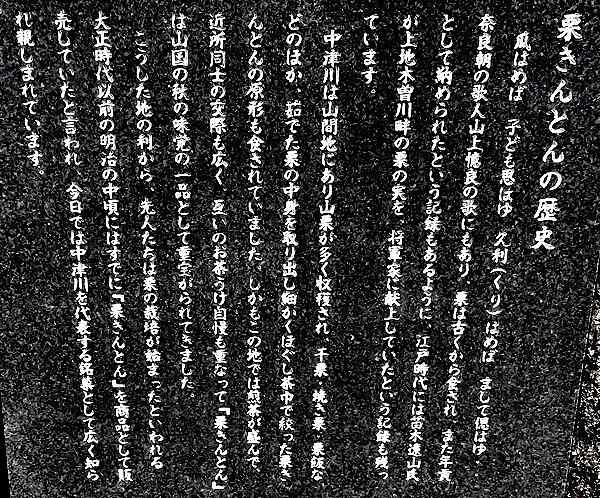 栗きんとんの歴史
瓜はめば 子ども思ほゆ 久利(くり)はめば まして偲ばゆ・
奈良朝の歌人山上憶良の歌にもあり、栗は古くから食され また年貢
として納められたという記録もあるように、江戸時代には苗木遠山氏
が上地木曽川畔の栗の実を、将軍家に献上していたという記録も残っ
ています。
中津川は山間地にあり山栗が多く収穫され、干栗・焼き栗・栗飯な
どのほか、茹でた栗の中身を取り出し細かくほぐし茶巾で絞った栗き
んとんの原形も食されていました。しかもこの地では煎茶が盛んで、
近所同士の交際も広く、互いのお茶うけ自慢も重なって『栗きんとん』
は山国の秋の味覚の一品として重宝がられてきました。
こうした地の利から、先人たちは栗の栽培が始まったといわれる
大正時代以前の明治の中頃にはすでに『栗きんとん』を商品として販
売していたと言われ、今日では中津川を代表する銘菓として広く知ら
れ親しまれています。